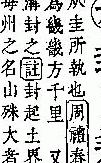 於圭所執也周禮春
爲畿畿方千里又
溝封之註封起土界
每州之名山殊大者